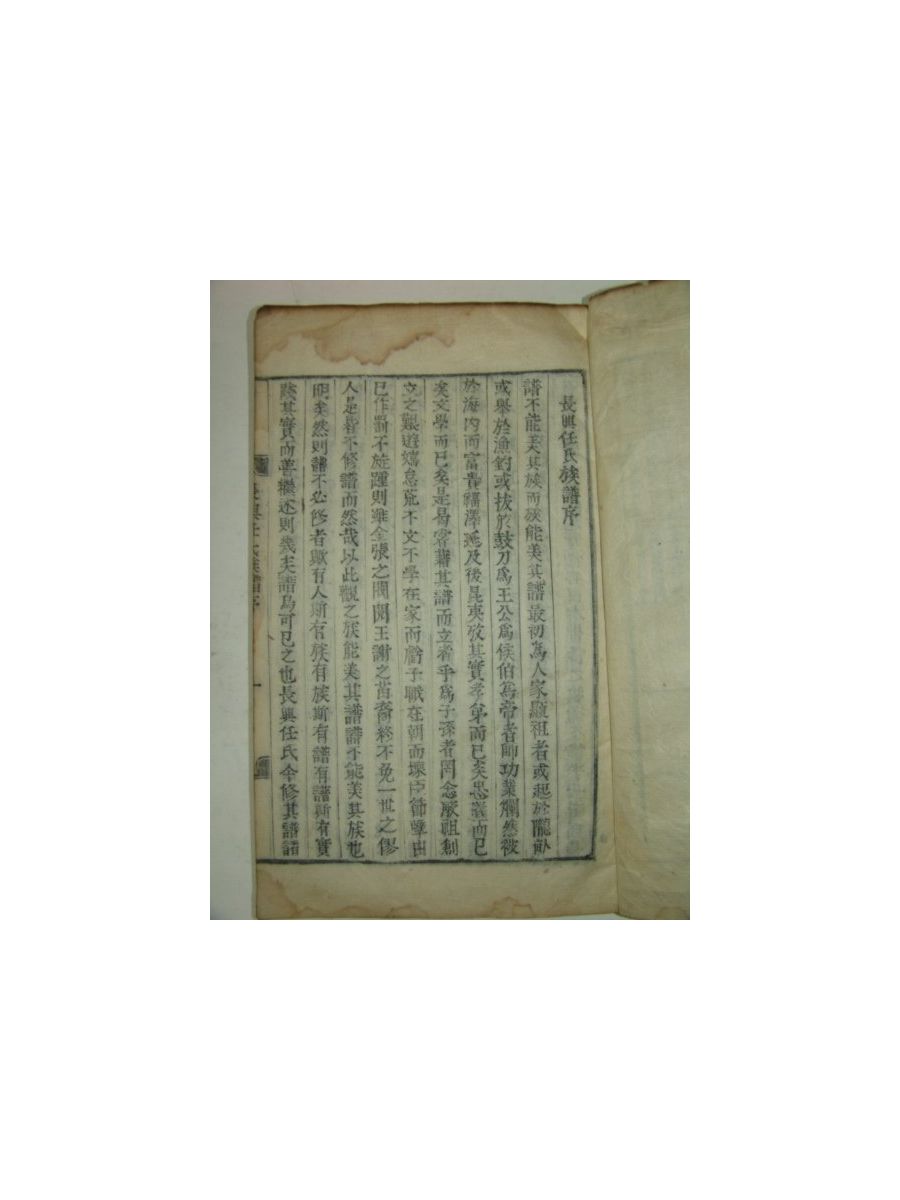 長興任氏族譜序
譜不能美其族而族能美其譜最初爲人家顯祖者或起於隴畝
或舉於漁釣或拔於鼓刀爲王公爲侯伯爲帝者師功業爛然被
於海內而富貴福澤延及後昆夷攷其實孝弟而已矣忠義而已
矣文學而已矣是曷嘗藉其譜而立者乎爲子孫者罔念厥祖創
立之艱遊嬉怠荒不文不學在家而虧子職在朝而壞臣節孽由
已作罰不旋踵則雖金張之閥閱王謝之苗裔終不免一世之僇
人是豈不修譜而然哉以此觀之族能美其譜譜不能美其族也
明矣然則譜不必修者歟有人斯有族有族斯有譜有譜斯有實
其實而善繼述則幾矣譜烏可已之也長興任氏今修其譜諸
長興任氏族譜序 一